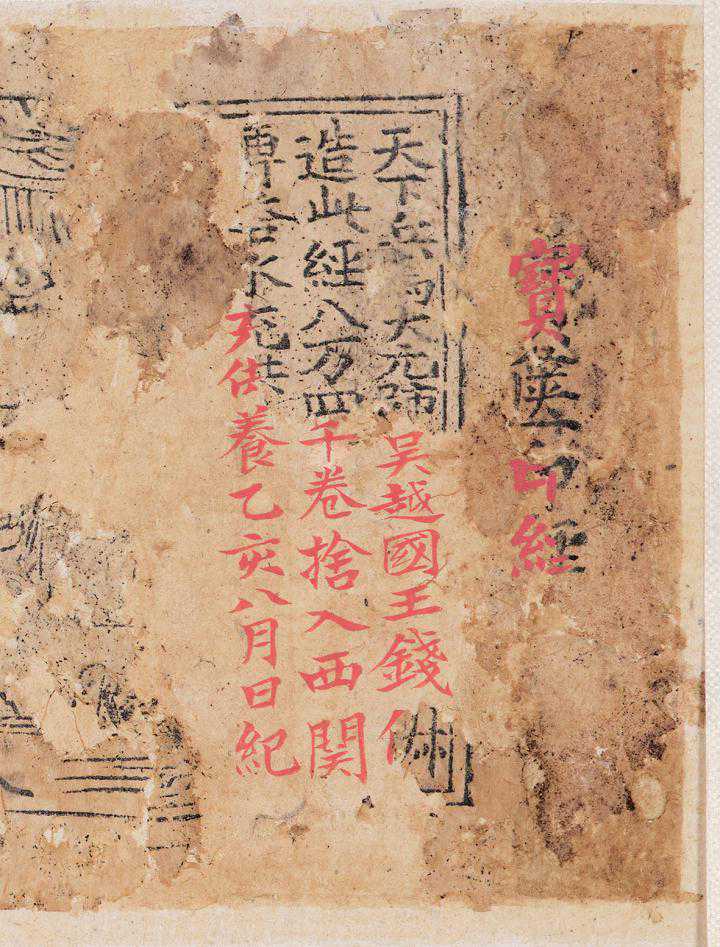 寶篋印經
天下兵馬大元帥吳越國王錢俶
造此經八万四千卷捨入西関
塼塔永充供養乙亥八月日紀